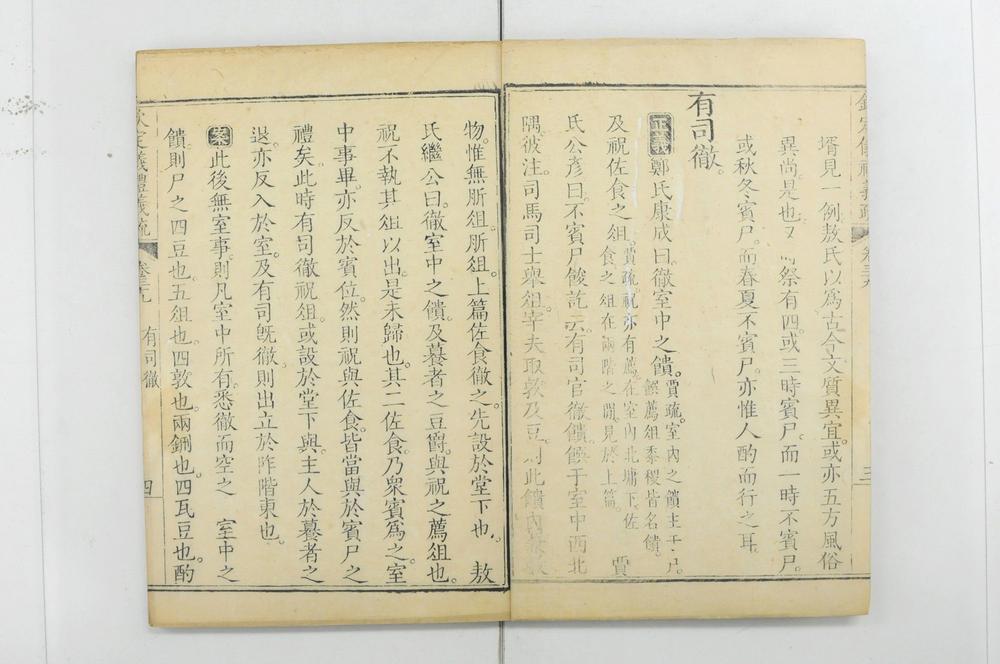 壻見一例敖氏以爲古今文質異宜或亦五方風俗
異尚是也又祭有四或三時賓尸而一時不賓尸
或秋冬賓尸而春夏不賓尸亦惟人酌而行之耳
有司徹
正義鄭氏康成曰徹室中之饋賈疏室內之饋主尸
饌薦俎黍稷皆名饋
及祝佐食之俎賈疏祝亦有薦在室內北墉下佐
食之俎在兩階之閒見於上篇
賈
氏公彥曰不賓尸餕訖云有司官徹饋饌于室中西北
隅彼注司馬司士舉俎宰夫取敦及豆此饋內
三
物惟無肵俎肵俎上篇佐食徹之先設於堂下也 敖
氏繼公曰徹室中之饋及養者之豆爵與祝之薦俎也
祝不執其俎以出是未歸也其二佐食乃衆賓爲之室
中事畢亦反於賓位然則祝與佐食皆當與於賓尸之
禮矣此時有司徹祝俎或設於堂下與主人於養者之
退亦反入於室及有司旣徹則出立於阼階東也
案此後無室事則凡室中所有悉徹而空之 室中之
饋則尸之四豆也五俎也四敦也兩鉶也四瓦豆也酌
欽定儀禮義疏 卷三十九 有司徹 四